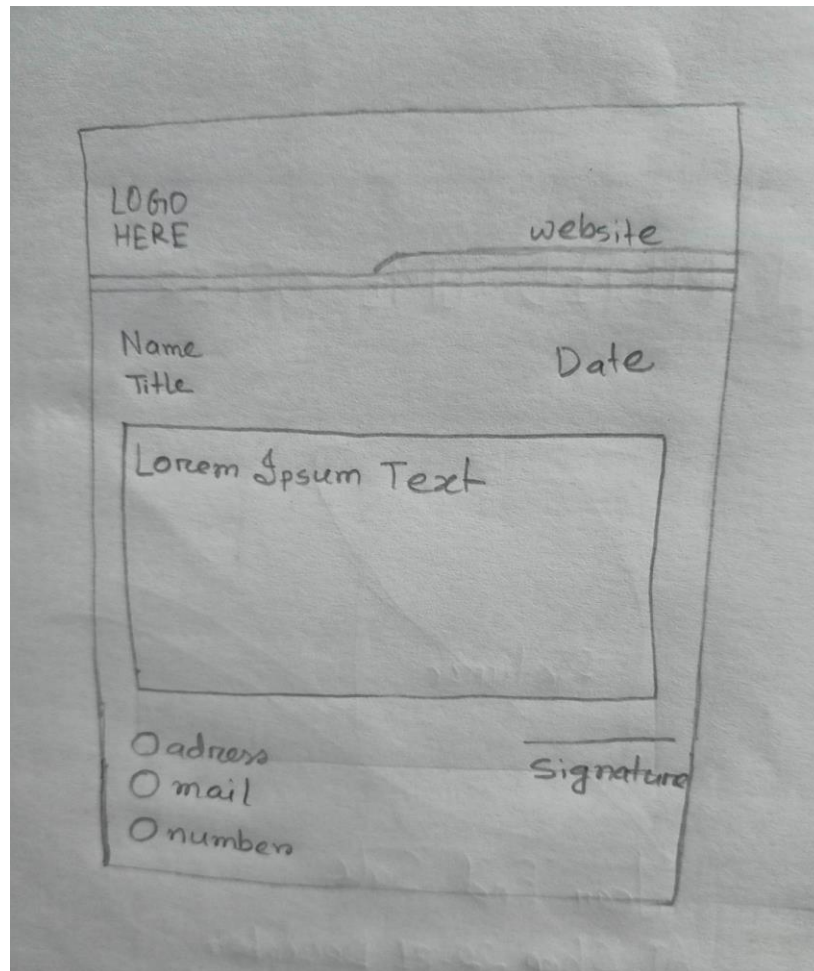 LOGO
HERE
website
Name
Title
Date
Lorem Ipsum Text
adress
mail
number
Signature